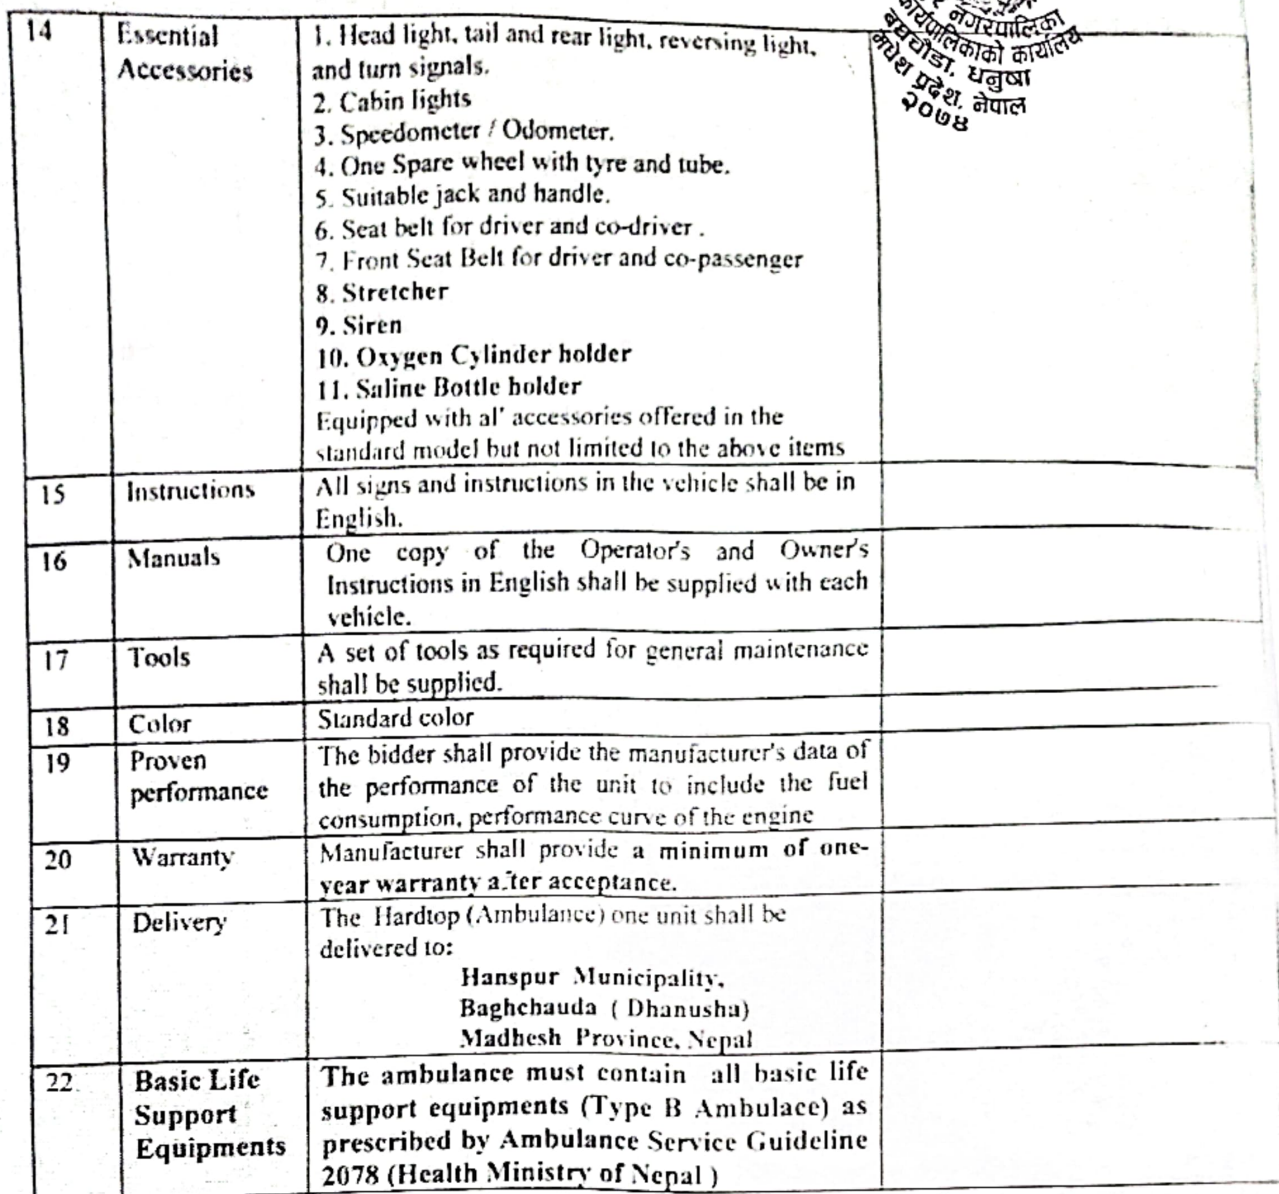 नगरपालिका
कार्यपालिकाको कार्यालय
बघचौडा, धनुषा
मधेश प्रदेश, नेपाल
२०७४
14 Essential Accessories
1. Head light, tail and rear light, reversing light,
and turn signals.
2. Cabin lights
3. Speedometer / Odometer.
4. One Spare wheel with tyre and tube.
5. Suitable jack and handle.
6. Seat belt for driver and co-driver .
7. Front Seat Belt for driver and co-passenger
8. Stretcher
9. Siren
10. Oxygen Cylinder holder
11. Saline Bottle holder
Equipped with al' accessories offered in the
standard model but not limited to the above items
15 Instructions All signs and instructions in the vehicle shall be in
English.
16 Manuals One copy of the Operator's and Owner's
Instructions in English shall be supplied with each
vehicle.
17 Tools A set of tools as required for general maintenance
shall be supplied.
18 Color Standard color
19 Proven performance
The bidder shall provide the manufacturer's data of
the performance of the unit to include the fuel
consumption, performance curve of the engine
20 Warranty Manufacturer shall provide a minimum of one-
year warranty after acceptance.
21 Delivery The Hardtop (Ambulance) one unit shall be
delivered to:
Hanspur Municipality,
Baghchauda ( Dhanusha)
Madhesh Province, Nepal
22. Basic Life Support Equipments
The ambulance must contain all basic life
support equipments (Type B Ambulace) as
prescribed by Ambulance Service Guideline
2078 (Health Ministry of Nepal )